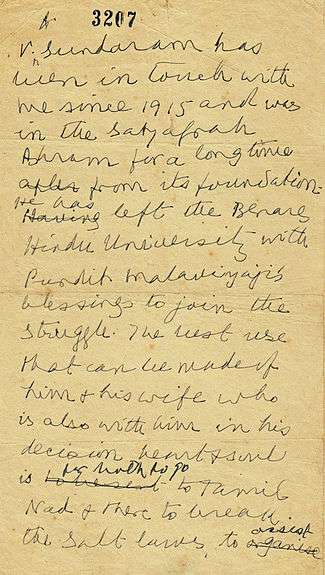 3207
V. Sundaram has
been in touch with
me since 1915 and was
in the Satyagrah
Ashram for a long time
after from its foundation.
He has
Having left the Benares
Hindu University with
Pundit Malaviyaji's
blessings to join the
struggle. The best use
that can be made of
him & his wife who
is also with him in his
decision heart & soul
is for both to go
to be sent to Tamil
Nad & there to break
the salt laws, to assist
organise